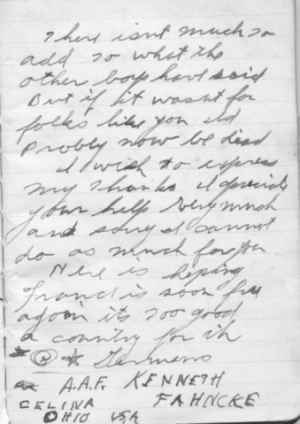 There isnt much to
add to what the
other boys have said
But if it wasnt for
folks like you Id
Probly now be dead
I wish to express
my thanks I appreciate
your help very much
and sorry I cannot
do as much for you
Here is hoping
France is soon free
again its too good
a country for th
Germans
A.A.F. KENNETH
FAHNCKE
CELINA
OHIO USA